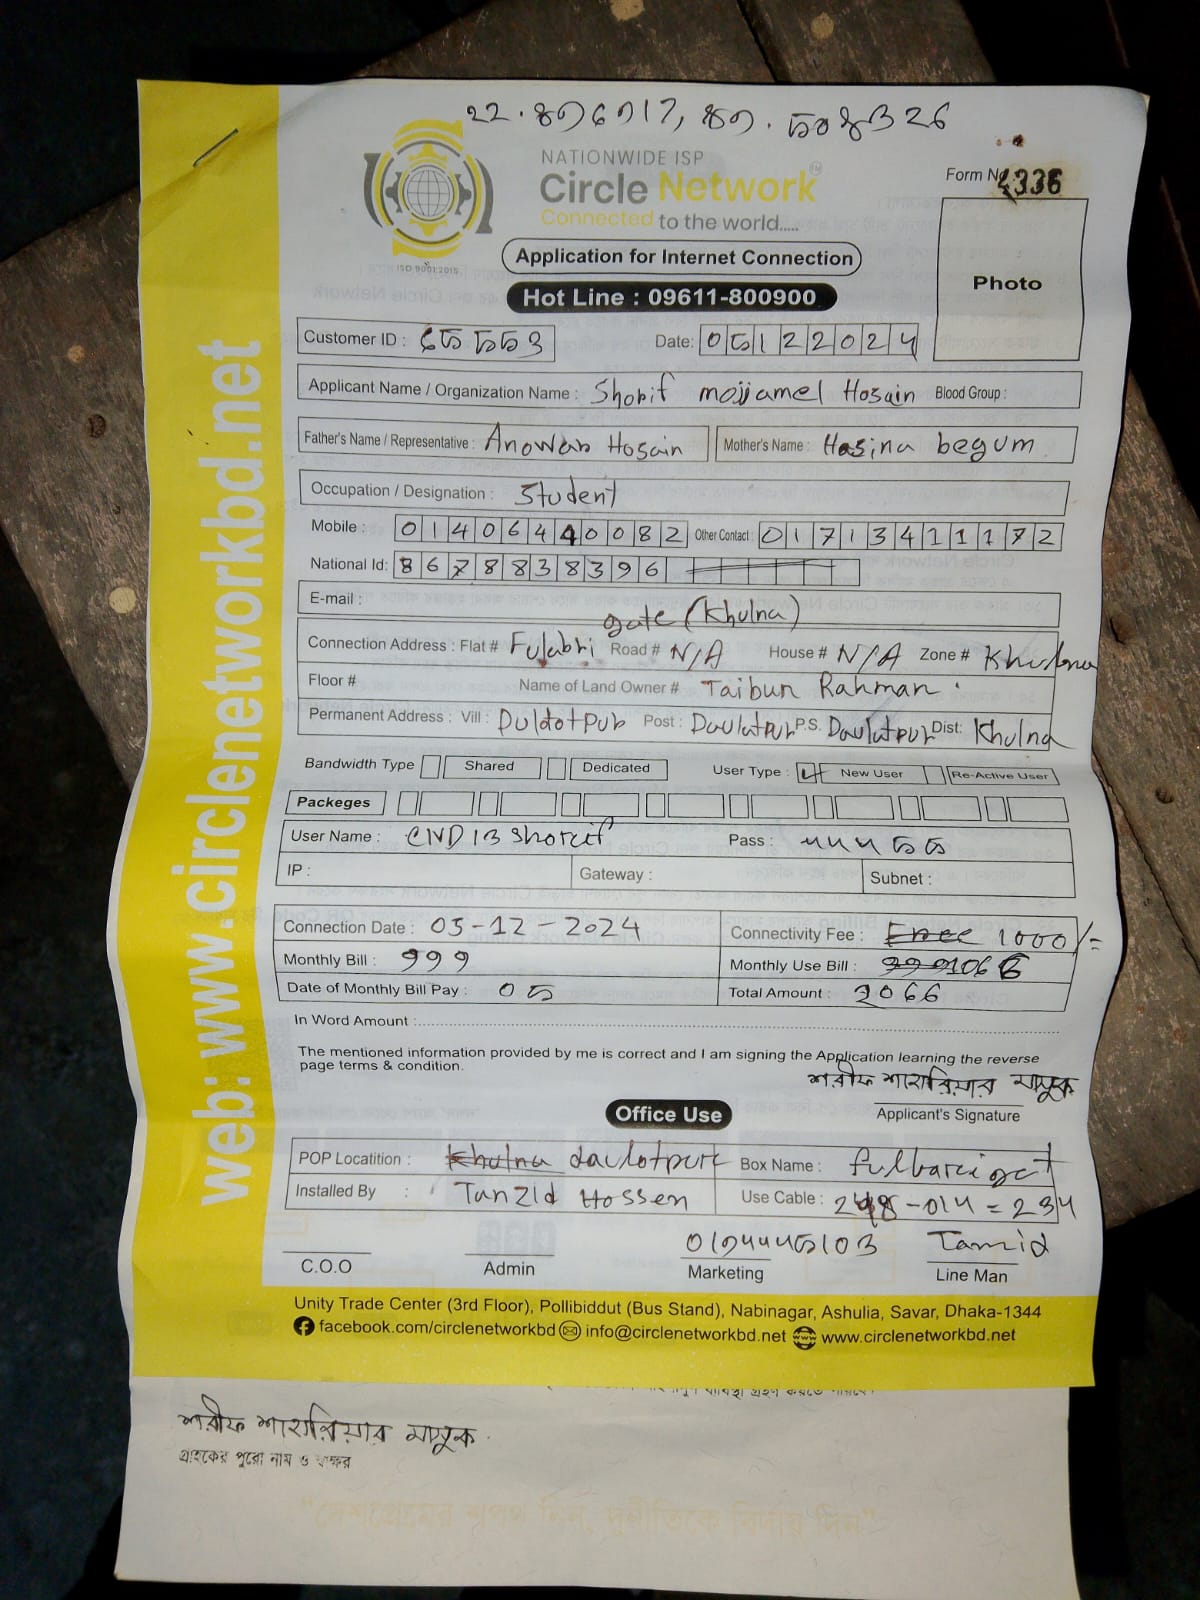 NATIONWIDE ISP
Circle Network
Connected to the world.....
ISO 9001:2015
Form No 4336
Application for Internet Connection
Hot Line : 09611-800900
Photo
Customer ID :
Date: 05122024
Applicant Name / Organization Name : Shorif mojjamel Hosain Blood Group :
Father's Name / Representative : Anowar Hosain Mother's Name : Hasina begum
Occupation / Designation : Student
Mobile : 01406440082 Other Contact : 01713411172
National Id: 8678838396
E-mail :
gate (Khulna)
Connection Address : Flat # Fulabri Road # N/A House # N/A Zone # Khulna
Floor # Name of Land Owner # Taibur Rahman
Permanent Address : Vill : Duldotpur Post : Daulatpur P.S. Daulatpur Dist: Khulna
Bandwidth Type Shared Dedicated User Type : New User Re-Active User
Packeges
User Name : CND13 Shorif Pass :
IP : Gateway : Subnet :
Connection Date : 05-12-2024 Connectivity Fee : Free 1000/=
Monthly Bill : 999 Monthly Use Bill : 1066
Date of Monthly Bill Pay : 05 Total Amount : 2066
In Word Amount :
The mentioned information provided by me is correct and I am signing the Application learning the reverse
page terms & condition.
শরীফ শাহারিয়ার মাসুক
Applicant's Signature
Office Use
POP Locatition : Khulna daulotpur Box Name : fulbarigct
Installed By : Tanzid Hossen Use Cable : 248-014 = 234
Tanzid
C.O.O Admin Marketing Line Man
Unity Trade Center (3rd Floor), Pollibiddut (Bus Stand), Nabinagar, Ashulia, Savar, Dhaka-1344
facebook.com/circlenetworkbd info@circlenetworkbd.net www.circlenetworkbd.net
web: www.circlenetworkbd.net
শরীফ শাহারিয়ার মাসুক
গ্রাহকের পুরো নাম ও স্বাক্ষর
"দেশপ্রেমের শপথ নিন, দুর্নীতিকে বিদায় দিন"